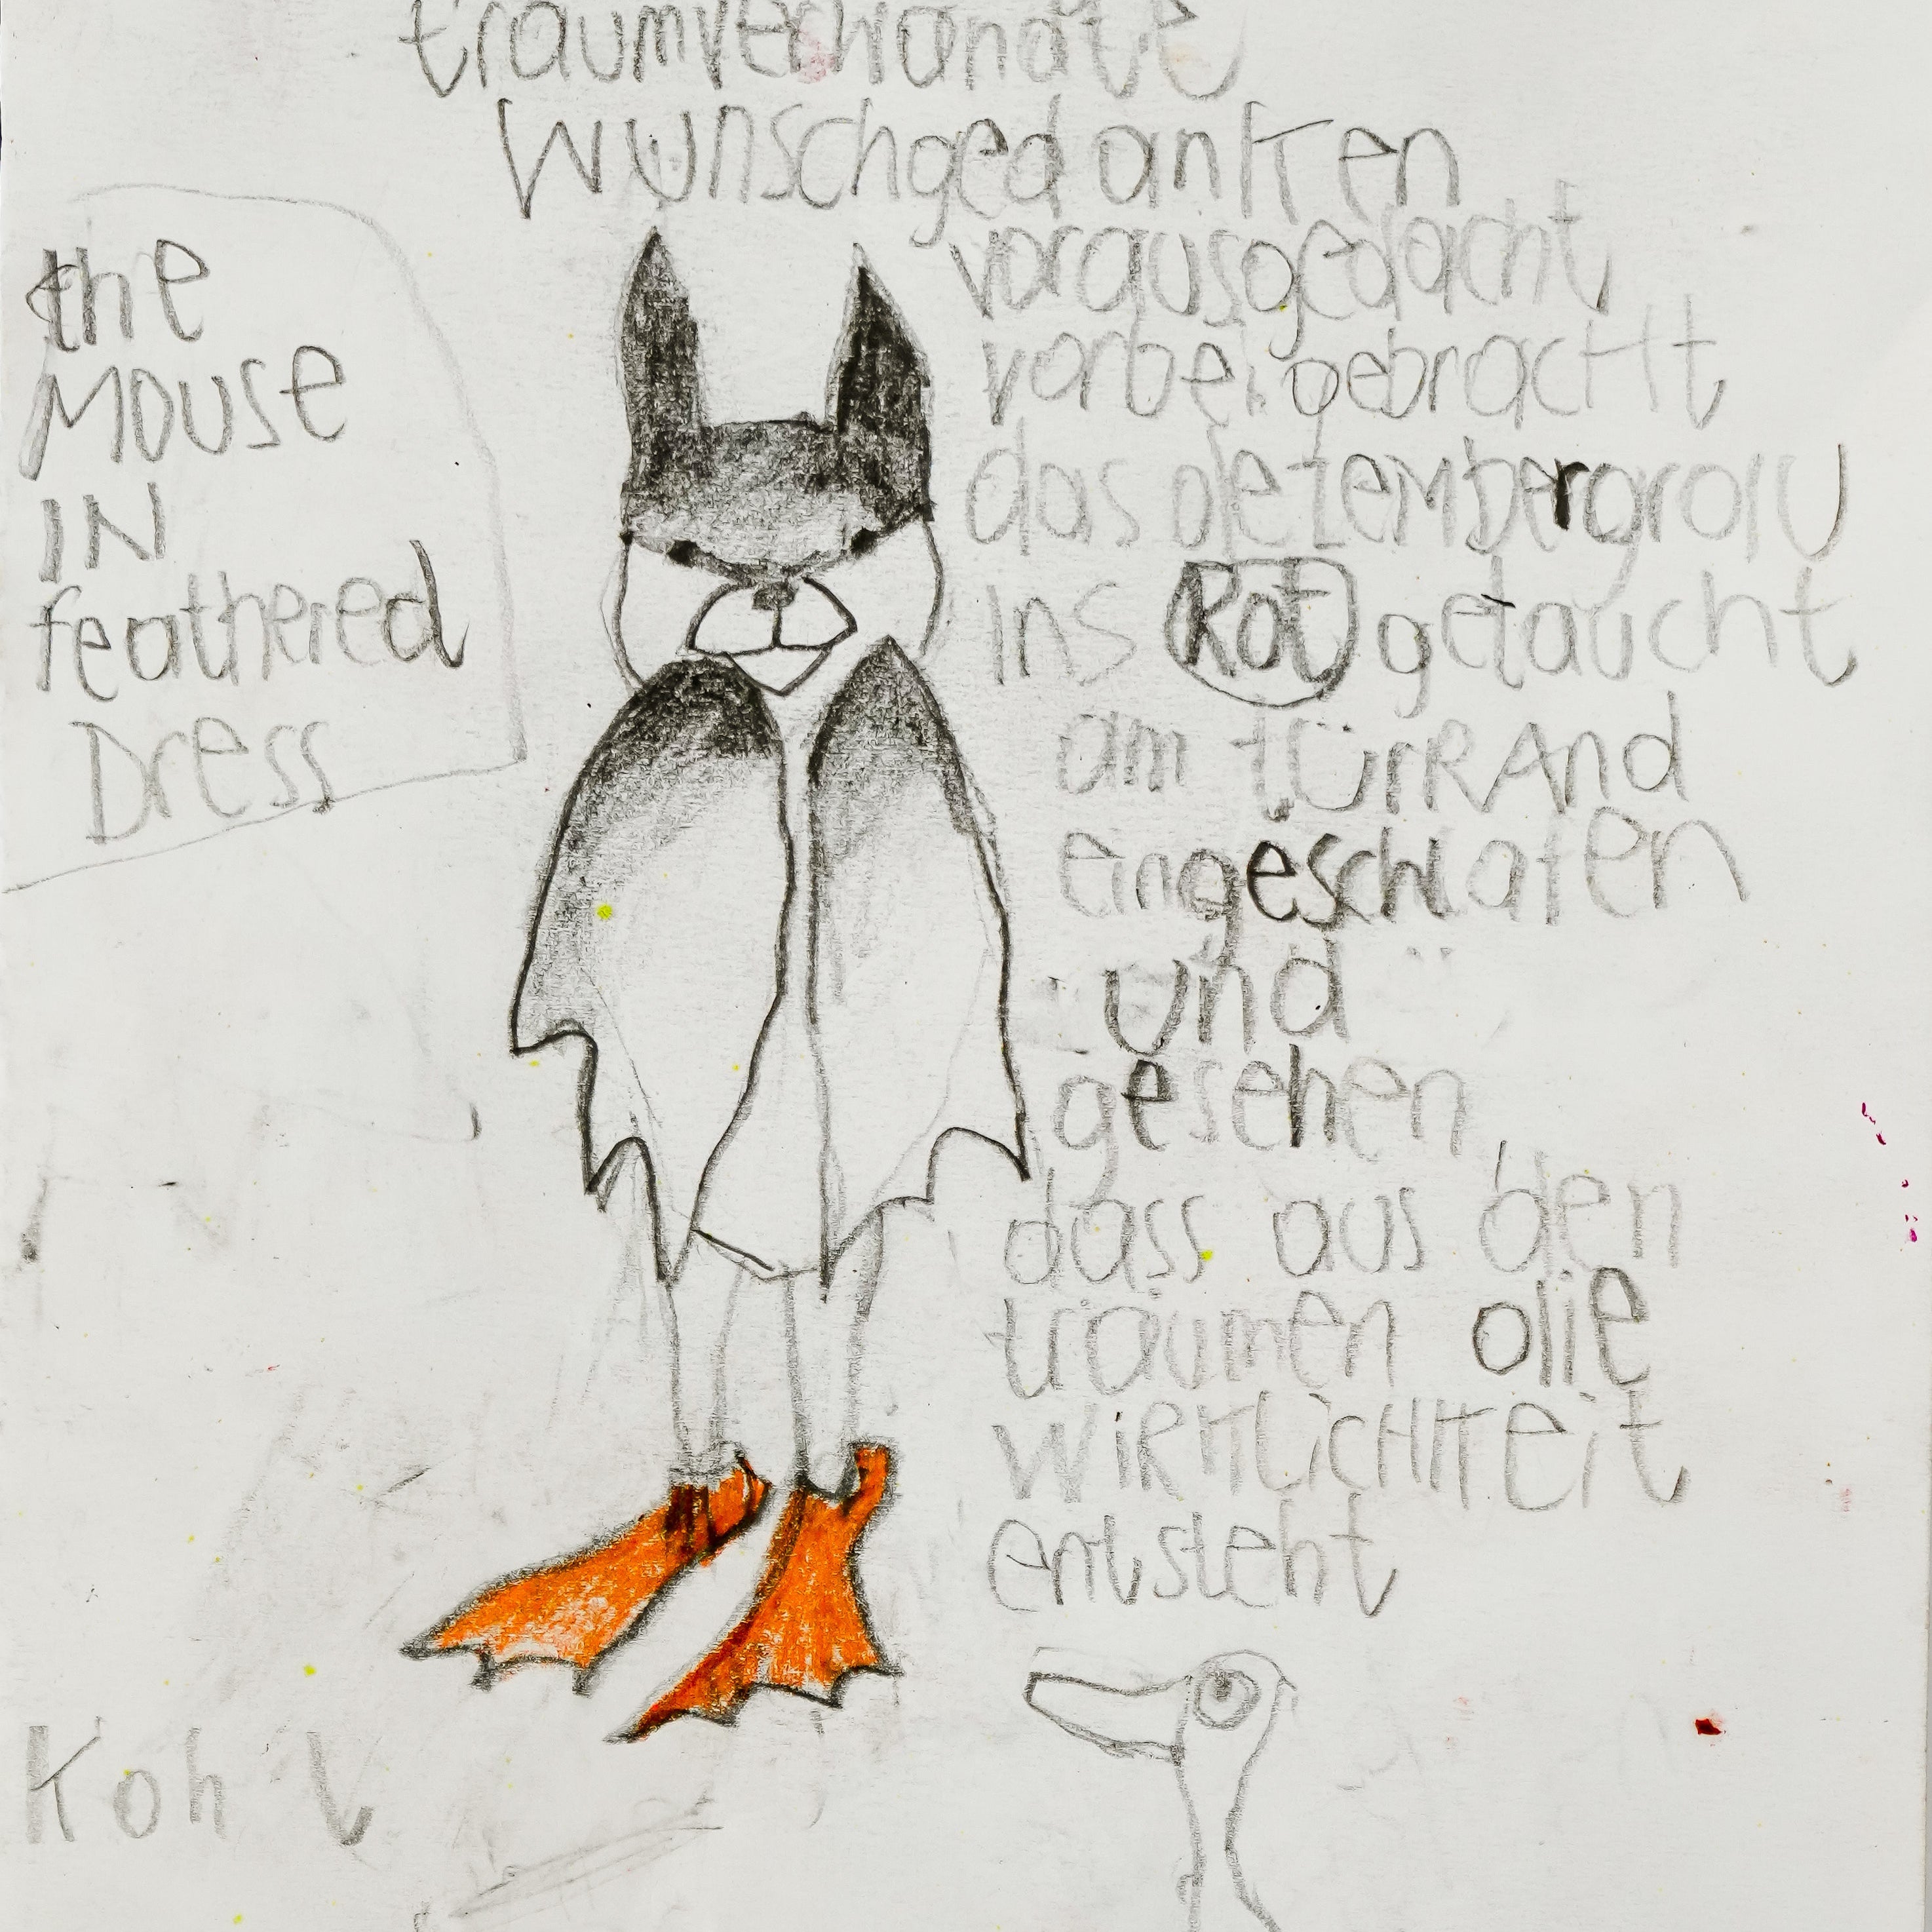 traumverwandte
wunschgedanken
vorausgedacht
vorbeigebracht
das dezembergrau
ins Rot getaucht
am türRAnd
eingeschlafen
und
gesehen
dass aus den
träumen die
WiRKLiCHKeit
entsteht
the
Mouse
IN
feathered
Dress
Kohl